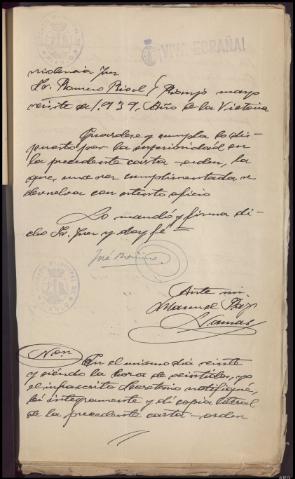 ¡VIVA ESPAÑA!
Providencia Juez
Sr. Romero Riscol / Riomo marzo
veinte de 1.939, Año de la Victoria
Guárdese y cumpla lo dis-
puesto por la superioridad en
la precedente carta-orden, la
que, una vez cumplimentada se
devolverá con atento oficio
Lo mandó y firma di-
cho Sr. Juez y doy fé
José Romero
Ante mi
Manuel
Not/ En el mismo día veinte
y siendo la hora de veintidós, yo
el infrascrito Secretario notifiqué,
leí integramente y dí copia literal
de la precedente carta-orden